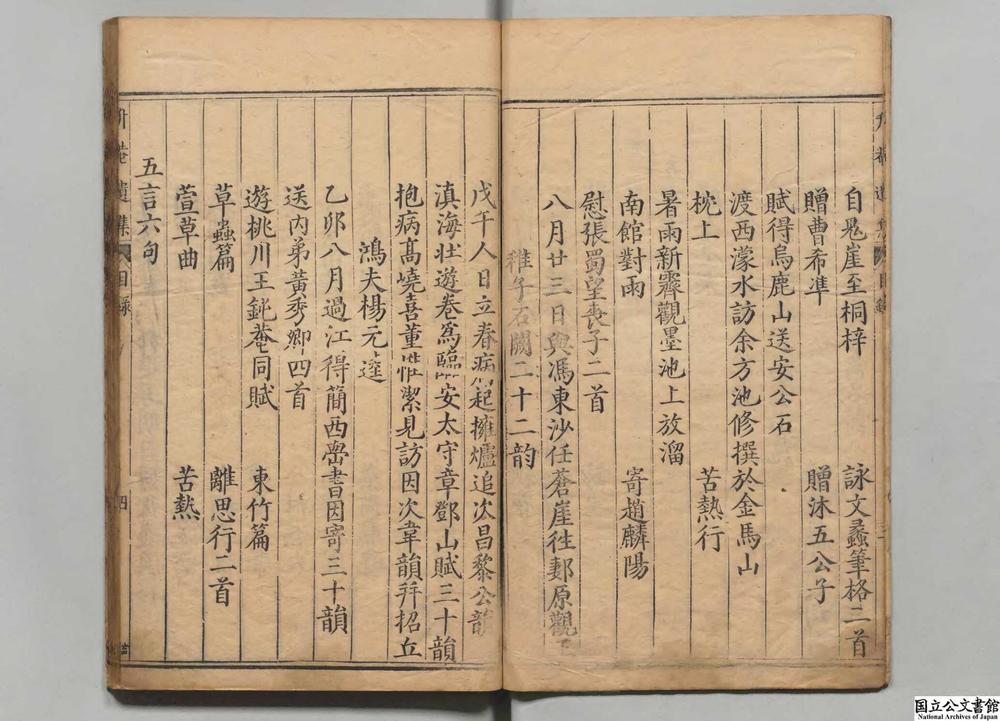 自鬼崖至桐梓　詠文蠡筆格二首
贈曹希準　贈沐五公子
賦得烏鹿山送安公石
渡西濛水訪余方池修撰於金馬山
枕上　苦熱行
暑雨新霽觀墨池上放溜
南館對雨　寄趙麟陽
慰張蜀望喪子二首
八月廿三日與馮東沙任蒼崖往郪原觀
稚子石闕二十二韵
戊午人日立春病起擁爐追次昌黎公韻
滇海壯遊卷爲臨安太守章鄧山賦三十韻
抱病高嶢喜董惟潔見訪因次韋韻并招丘
鴻夫楊元達
乙卯八月過江得簡西嶨書因寄三十韻
送内弟黃秀卿四首
遊桃川王鈍菴同賦　東竹篇
草蟲篇　離思行二首
萱草曲　苦熱
五言六句
升菴遺集　目錄　四
国立公文書館
National Archives of Japan